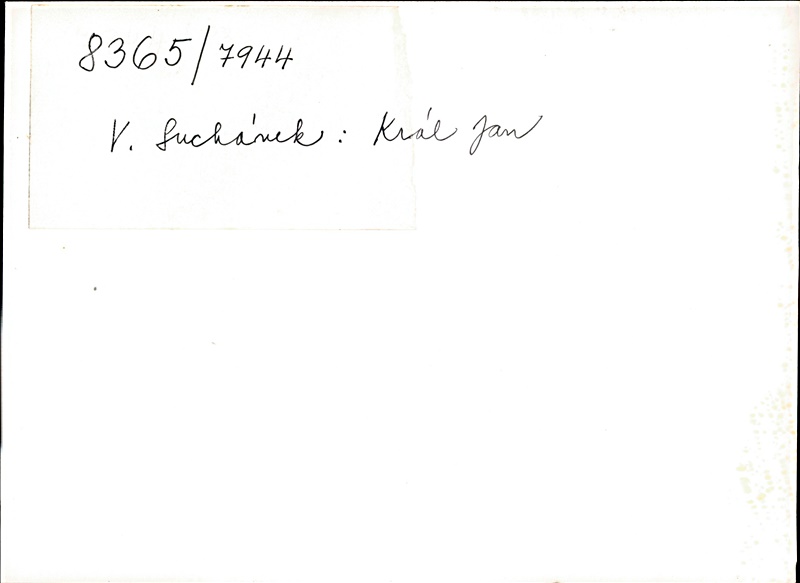 8365/7944
V. Suchánek: Král Jan